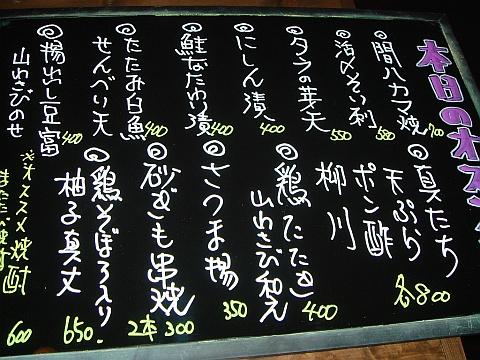 本日のオス
間八カマ焼 700
活〆そい刺 580
タラの芽天 550
にしん漬 400
鮭なた切り漬 400
たたみ白魚せんべい天 400
揚出し豆富
山わさびのせ 400
真たち
天ぷら
ポン酢
柳川
各800
鶏たたき
山わさび和え 400
さつま揚 350
砂ぎも串焼
2本 300
鶏そぼろ入り
柚子真丈 650.
※オススメ焼酎
600